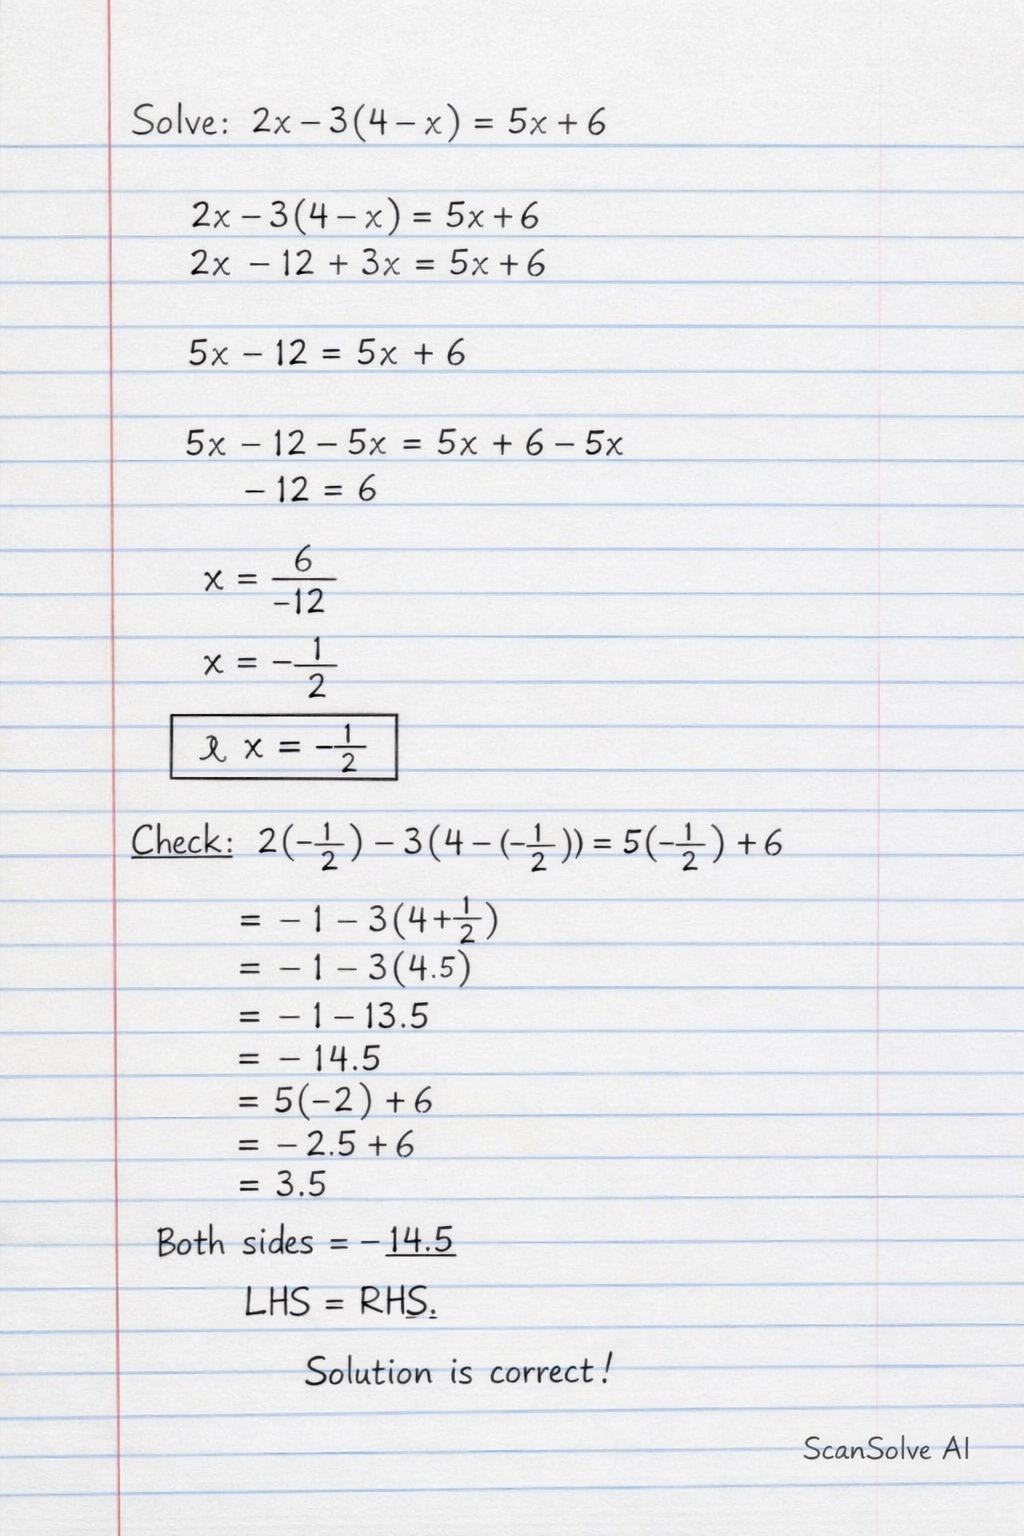 Solve: 2x − 3(4 − x) = 5x + 6
2x − 3(4 − x) = 5x + 6
2x − 12 + 3x = 5x + 6
5x − 12 = 5x + 6
5x − 12 − 5x = 5x + 6 − 5x
− 12 = 6
x = 6/−12
x = −1/2
x = −1/2
Check: 2(−1/2) − 3(4 − (−1/2)) = 5(−1/2) + 6
= − 1 − 3(4 + 1/2)
= − 1 − 3(4.5)
= − 1 − 13.5
= − 14.5
= 5(−2) + 6
= − 2.5 + 6
= 3.5
Both sides = − 14.5
LHS = RHS.
Solution is correct!
ScanSolve AI